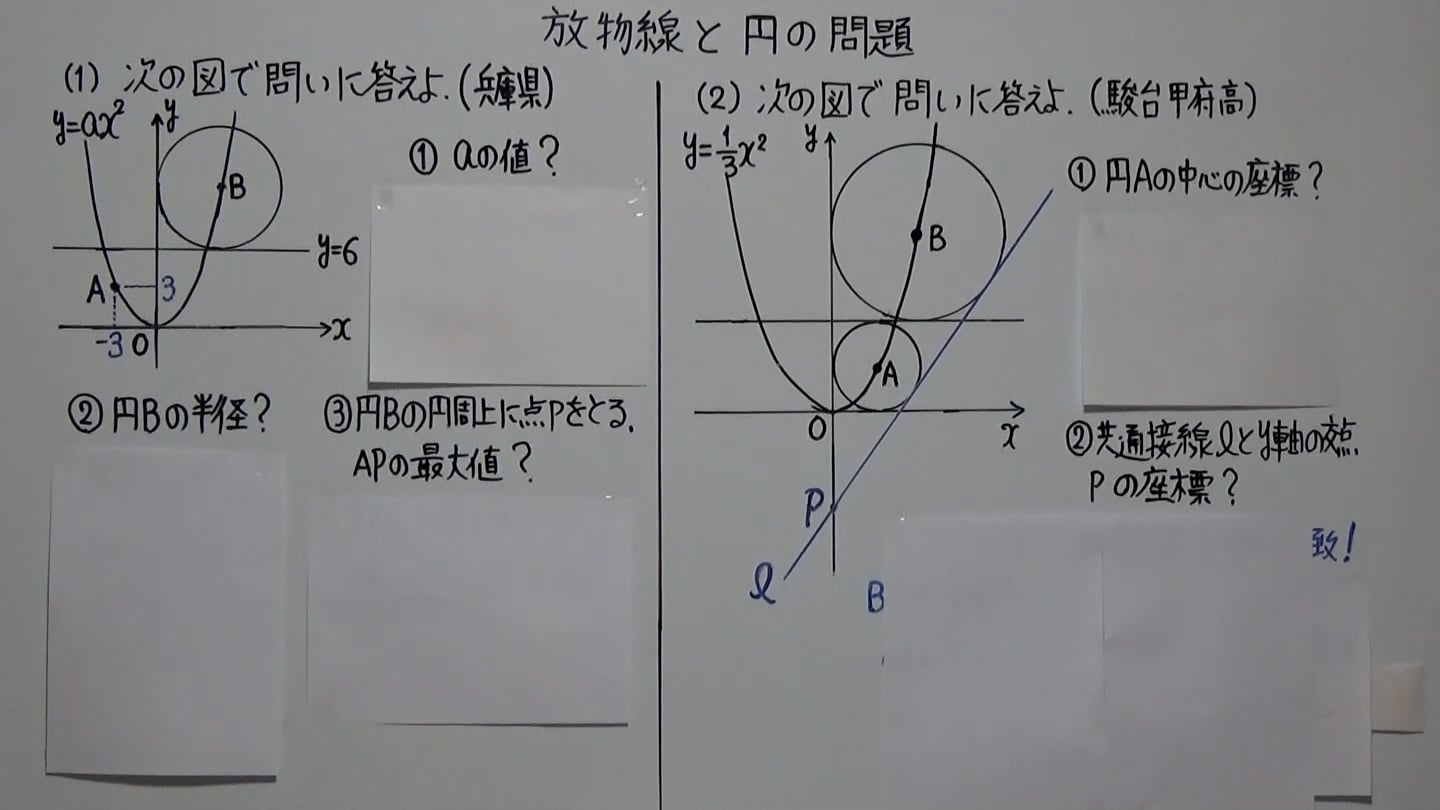 放物線と円の問題
(1) 次の図で問いに答えよ.(兵庫県)
y=ax²
y
B
y=6
A
3
x
-3
O
① aの値?
② 円Bの半径?
③円Bの円周上に点Pをとる.
APの最大値?
(2) 次の図で問いに答えよ.(駿台甲府高)
y=1/3x²
y
B
A
O
x
P
l
① 円Aの中心の座標?
②共通接線lとy軸の交点
Pの座標?
致!
B